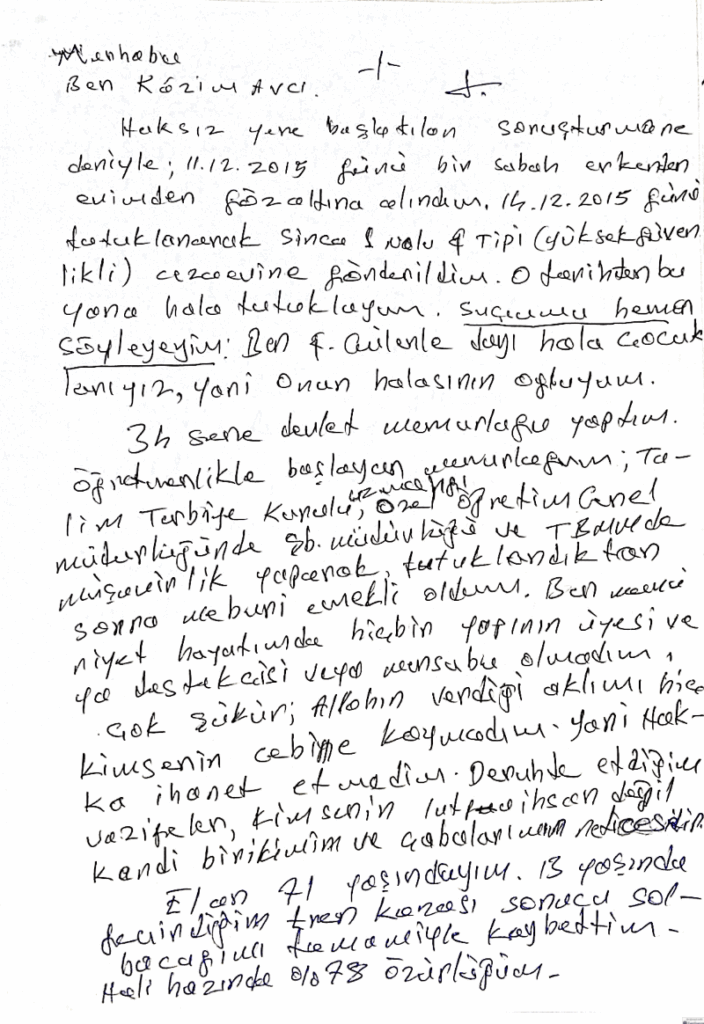 Merhaba
-1-
Ben Kâzım AVCI.
Haksız yere başlatılan soruşturma ne
deniyle; 11.12.2015 günü bir sabah erkenden
evimden gözaltına alındım. 14.12.2015 günü
tutuklanarak Sincan 1 Nolu F Tipi (yüksek güven
likli) cezaevine gönderildim. O tarihten bu
yana hala tutukluyum. Suçumu hemen
söyleyeyim: Ben F. Gülenle dayı hala çocuk
larıyız, yani onun halasının oğluyum.
34 sene devlet memurluğu yaptım.
Öğretmenlikle başlayan memurluğum; Ta-
lim Terbiye Kurulu uzmanlığı, Özel Öğretim Genel
müdürlüğünde Şb. müdürlüğü ve TBMM'de
müşavirlik yaparak, tutuklandıktan
sonra mecburi emekli oldum. Ben memu
niyet hayatımda hiçbir yapının üyesi ve
ya destekcisi veya mensubu olmadım,
çok şükür; Allahın verdiği aklımı hiç
kimsenin cebine koymadım. Yani Hak-
ka ihanet etmedim. Deruhte ettiğim
vazifeler, kimsenin lutfu ihsan değil
kendi birikimim ve çabalarımın neticesidir.
Elan 71 yaşındayım. 13 yaşında
geçirdiğim tren kazası sonucu sol-
bacağımı tamamiyle kaybettim-
Hali hazırda %78 özürlüyüm-